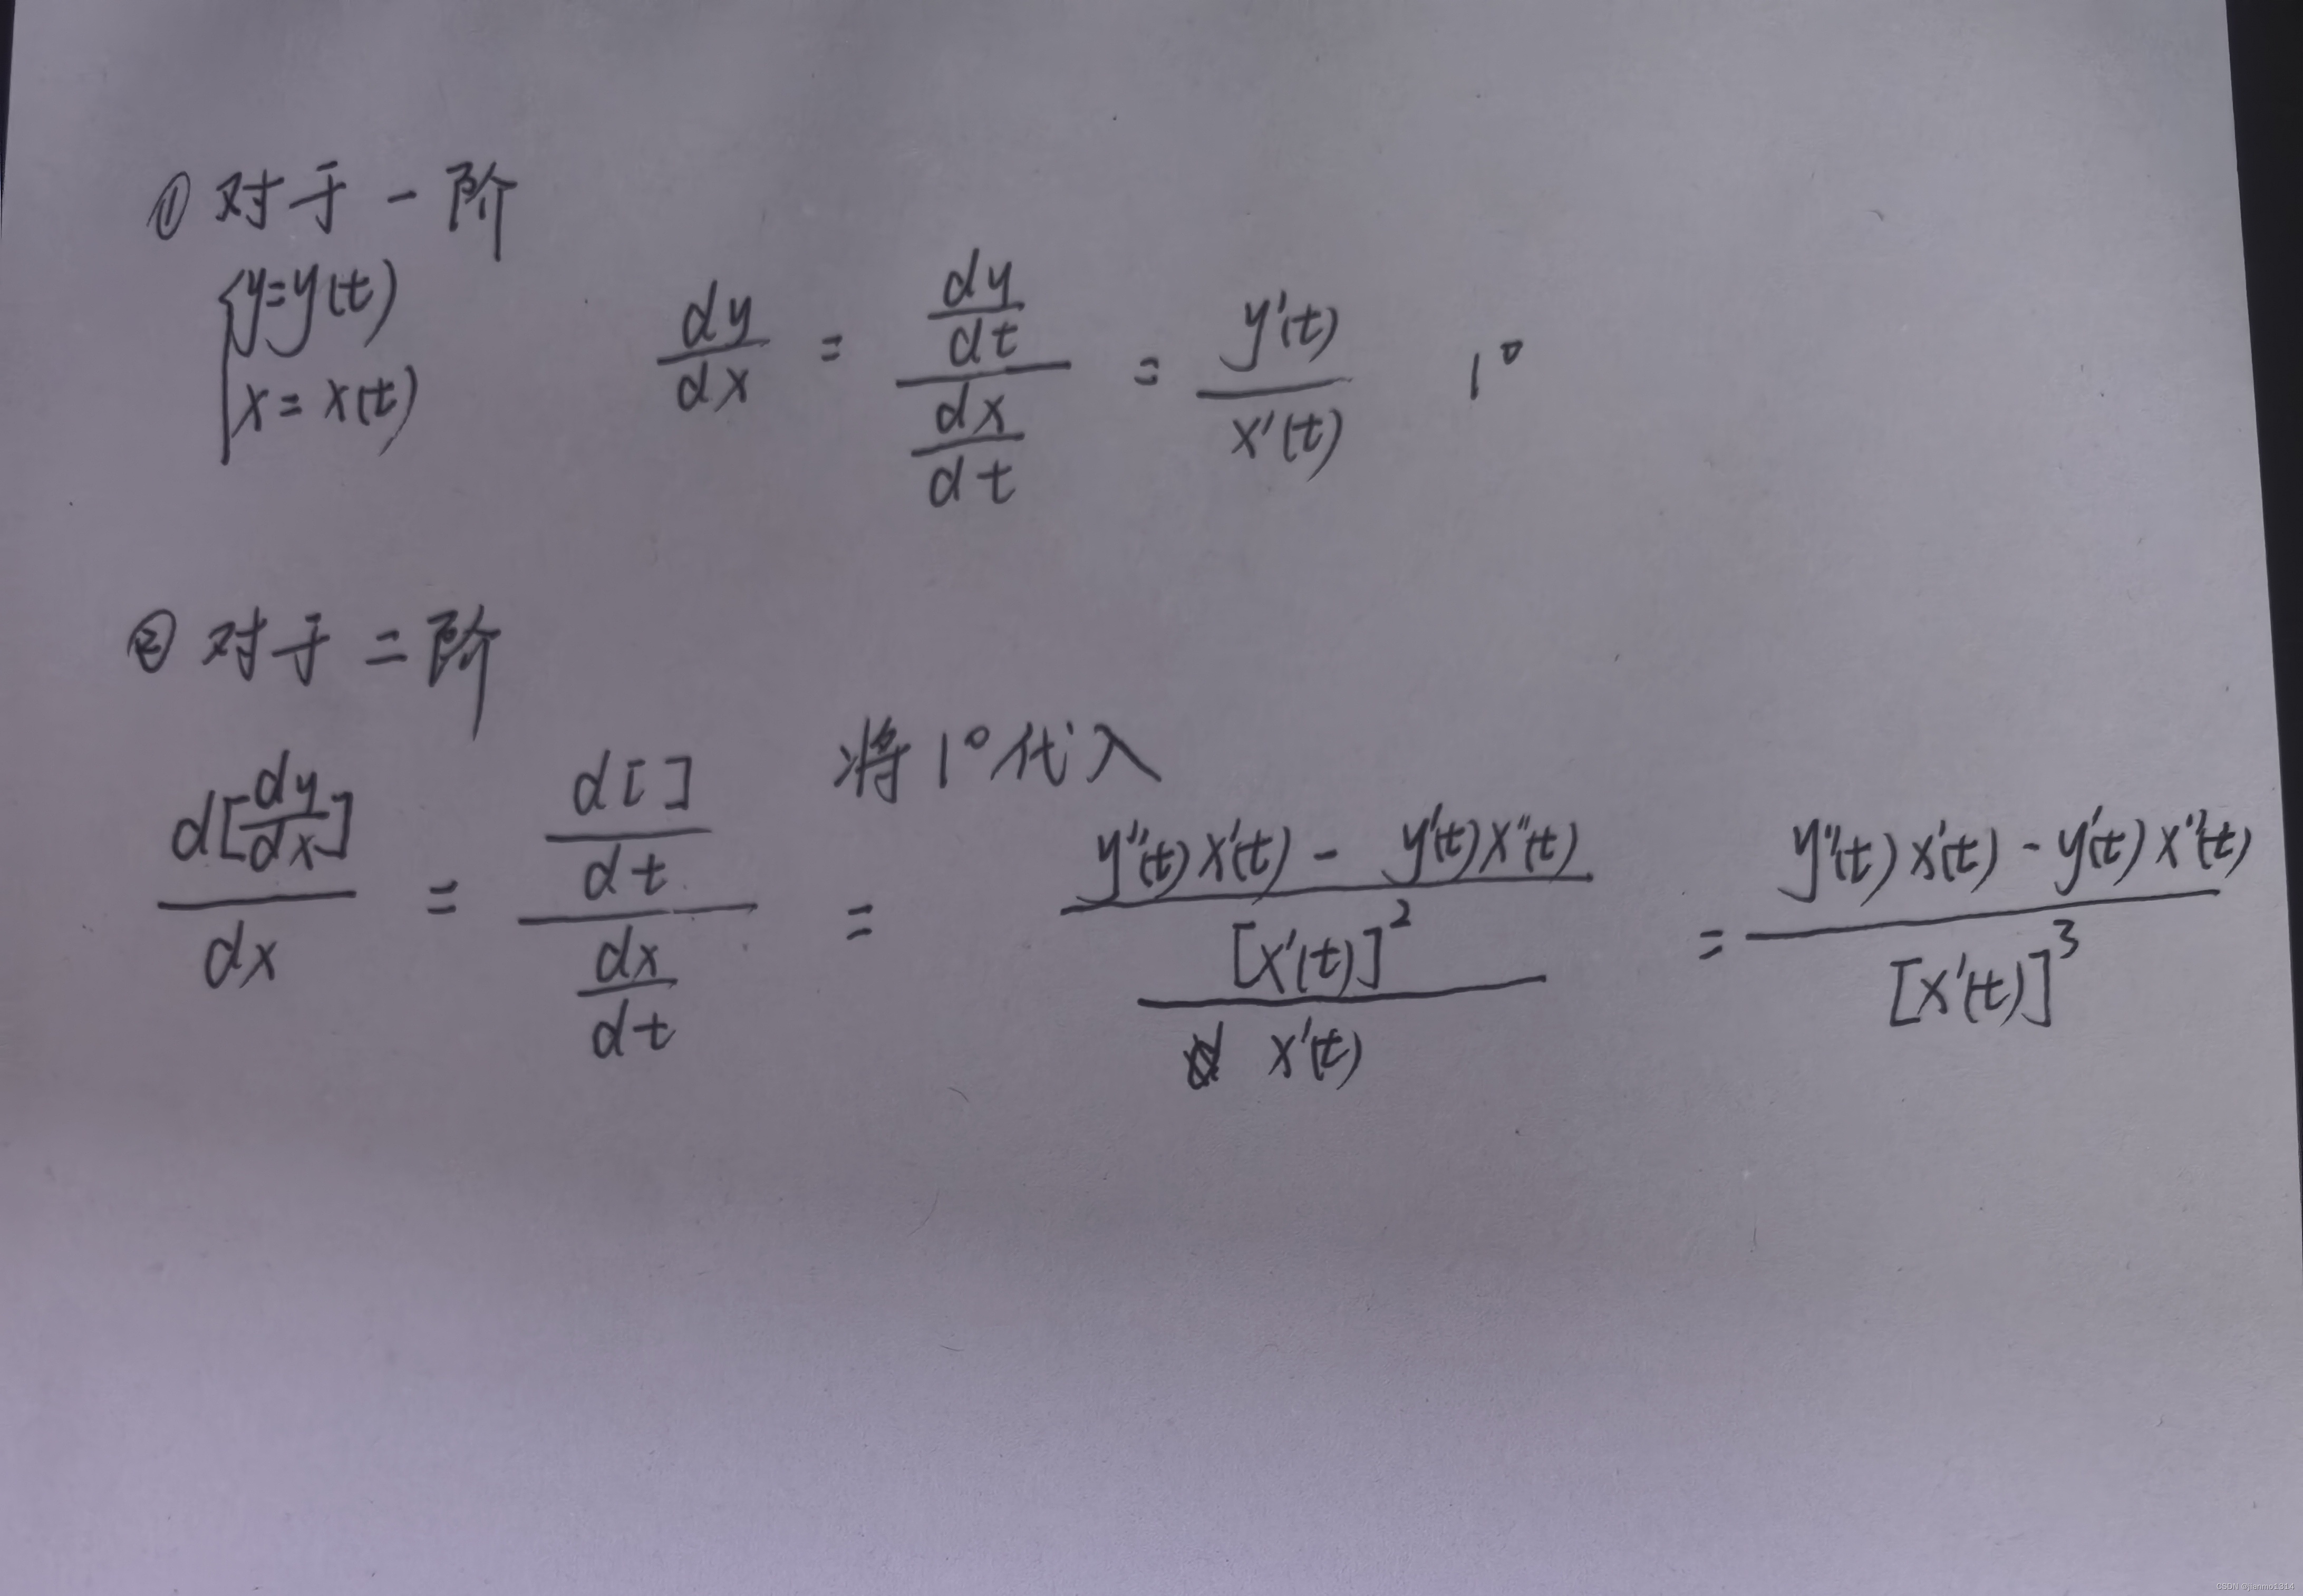 ① 对于一阶
{y=y(t)
x=x(t)
dy/dx = (dy/dt)/(dx/dt) = y'(t)/x'(t) 1°
② 对于二阶
将1°代入
d[dy/dx]/dx = (d[ ]/dt)/(dx/dt) = ((y''(t)x'(t) - y'(t)x''(t))/[x'(t)]^2)/x'(t) = (y''(t)x'(t) - y'(t)x''(t))/[x'(t)]^3